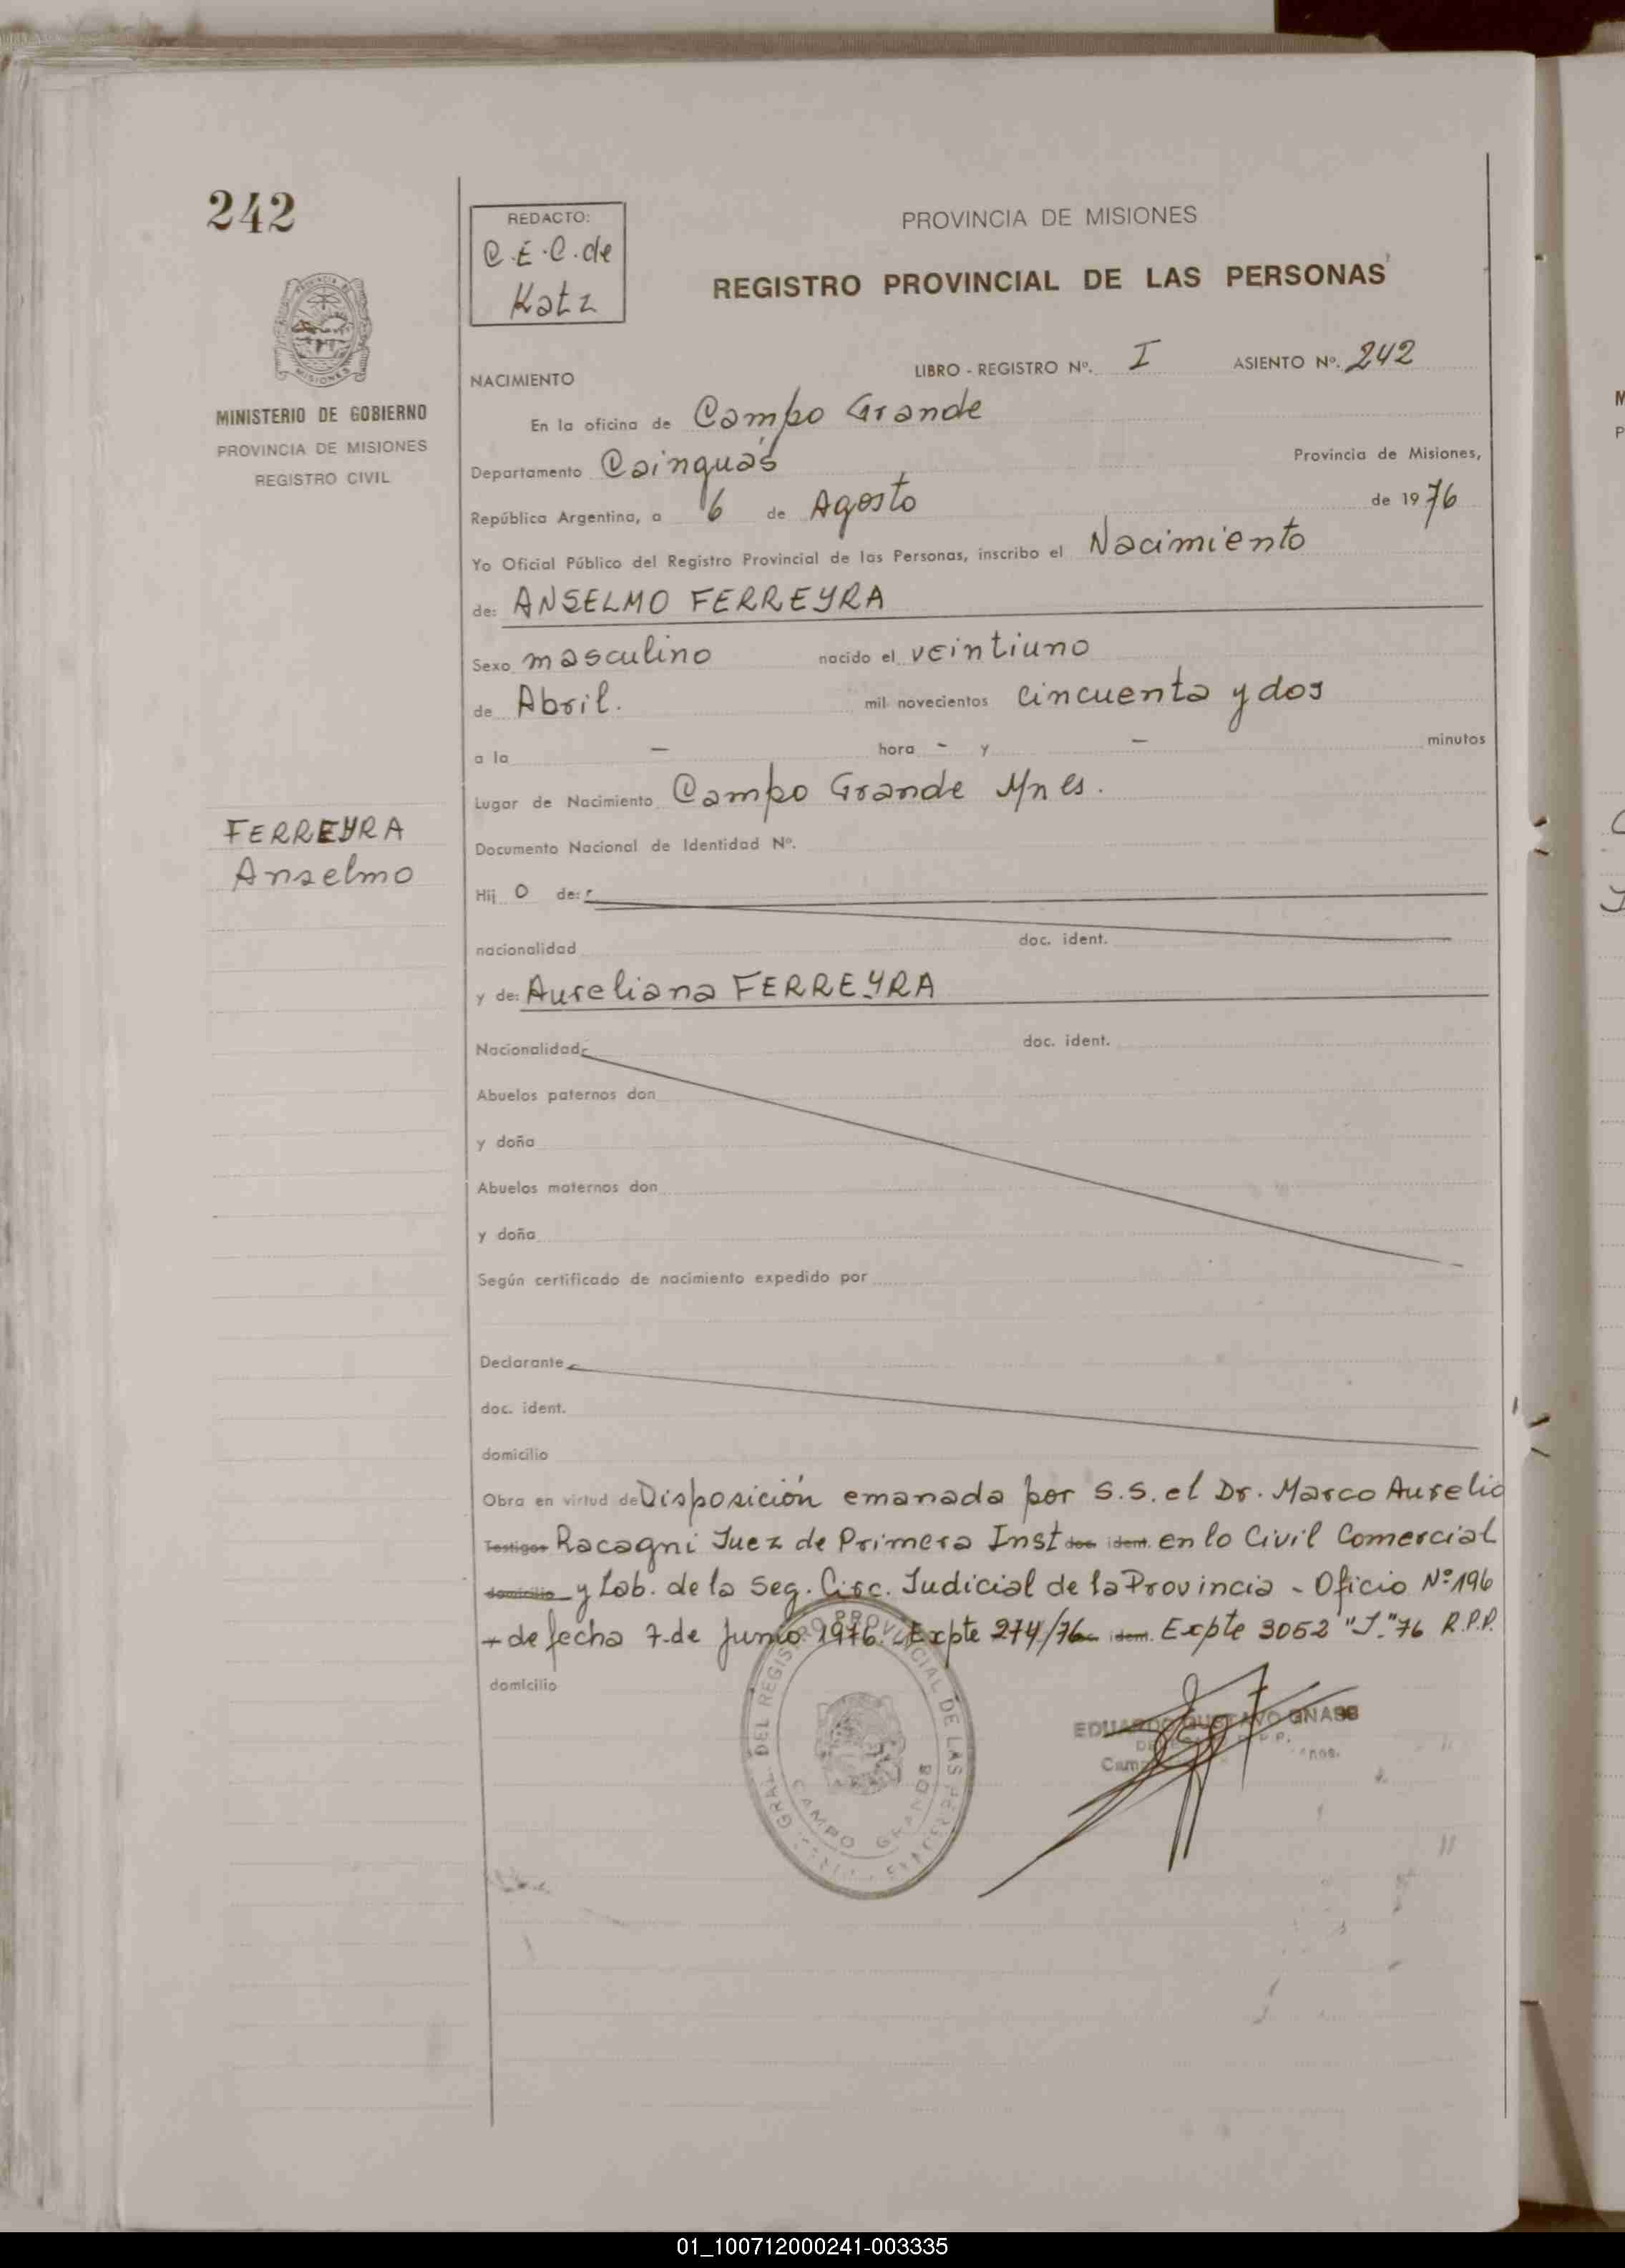 242
REDACTO:
C.E.C. de
Katz
PROVINCIA DE MISIONES
REGISTRO PROVINCIAL DE LAS PERSONAS
MISIONES
MINISTERIO DE GOBIERNO
PROVINCIA DE MISIONES
REGISTRO CIVIL
NACIMIENTO
LIBRO - REGISTRO Nº. I ASIENTO Nº. 242
En la oficina de Campo Grande
Departamento Cainguás Provincia de Misiones,
República Argentina, a 6 de Agosto de 1976
Yo Oficial Público del Registro Provincial de las Personas, inscribo el Nacimiento
de: ANSELMO FERREYRA
Sexo masculino nacido el veintiuno
de Abril. mil novecientos cincuenta y dos
a la - hora - y - minutos
Lugar de Nacimiento Campo Grande Mnes.
FERREYRA
Anselmo
Documento Nacional de Identidad Nº.
Hij o de:
nacionalidad doc. ident.
y de: Aureliana FERREYRA
Nacionalidad doc. ident.
Abuelos paternos don
y doña
Abuelos maternos don
y doña
Según certificado de nacimiento expedido por
Declarante
doc. ident.
domicilio
Obra en virtud de Disposición emanada por S.S. el Dr. Marco Aurelio
Testigos Racagni Juez de Primera Inst doc ident. en lo Civil Comercial
domicilio y Lab. de la Seg. Circ. Judicial de la Provincia - Oficio Nº 196
- de fecha 7 de Junio 1976. Expte 274/76 ident. Expte 3052 "J." 76 R.P.P.
domicilio
GRAL. DEL REGISTRO PROVINCIAL DE LAS PERSONAS
CAMPO GRANDE
EDUARDO GUSTAVO GNASS
01_100712000241-003335